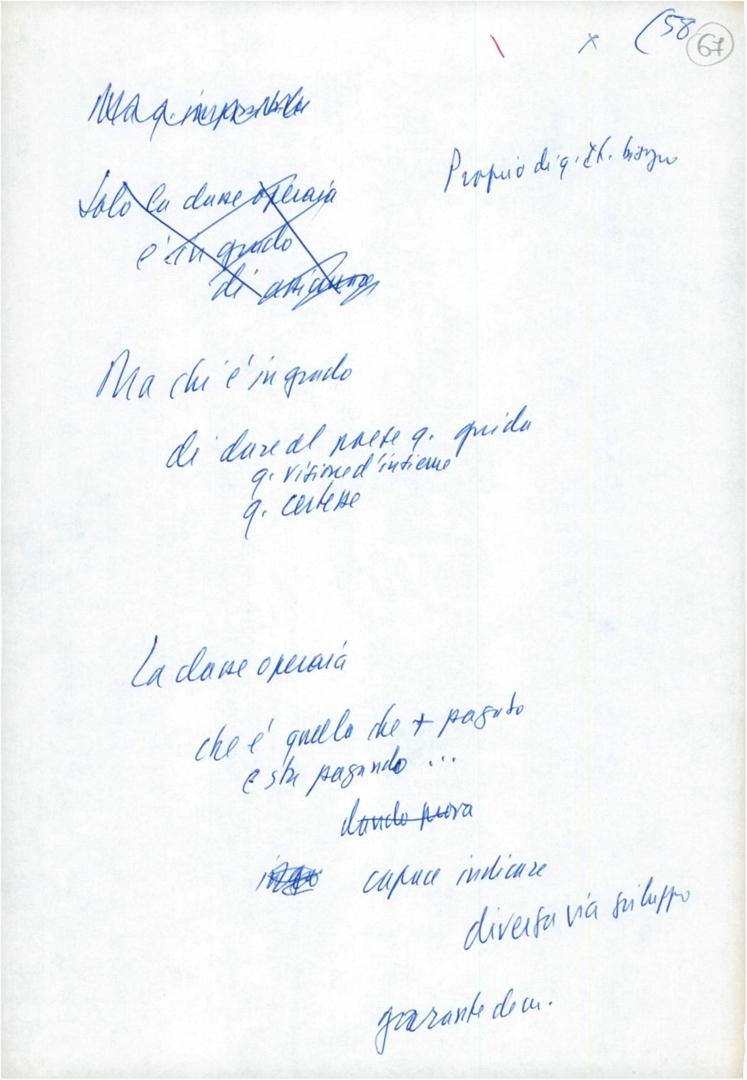 (58
67
Ma q.
Proprio di q. bisogno
Solo la classe operaia
è in grado
di
Ma chi è in grado
di dare al paese q. guida
q. visione d'insieme
q. certezze
La classe operaia
che è quella che + pagato
e sta pagando ...
dando prova
capace indicare
diversa via sviluppo
garante dem.